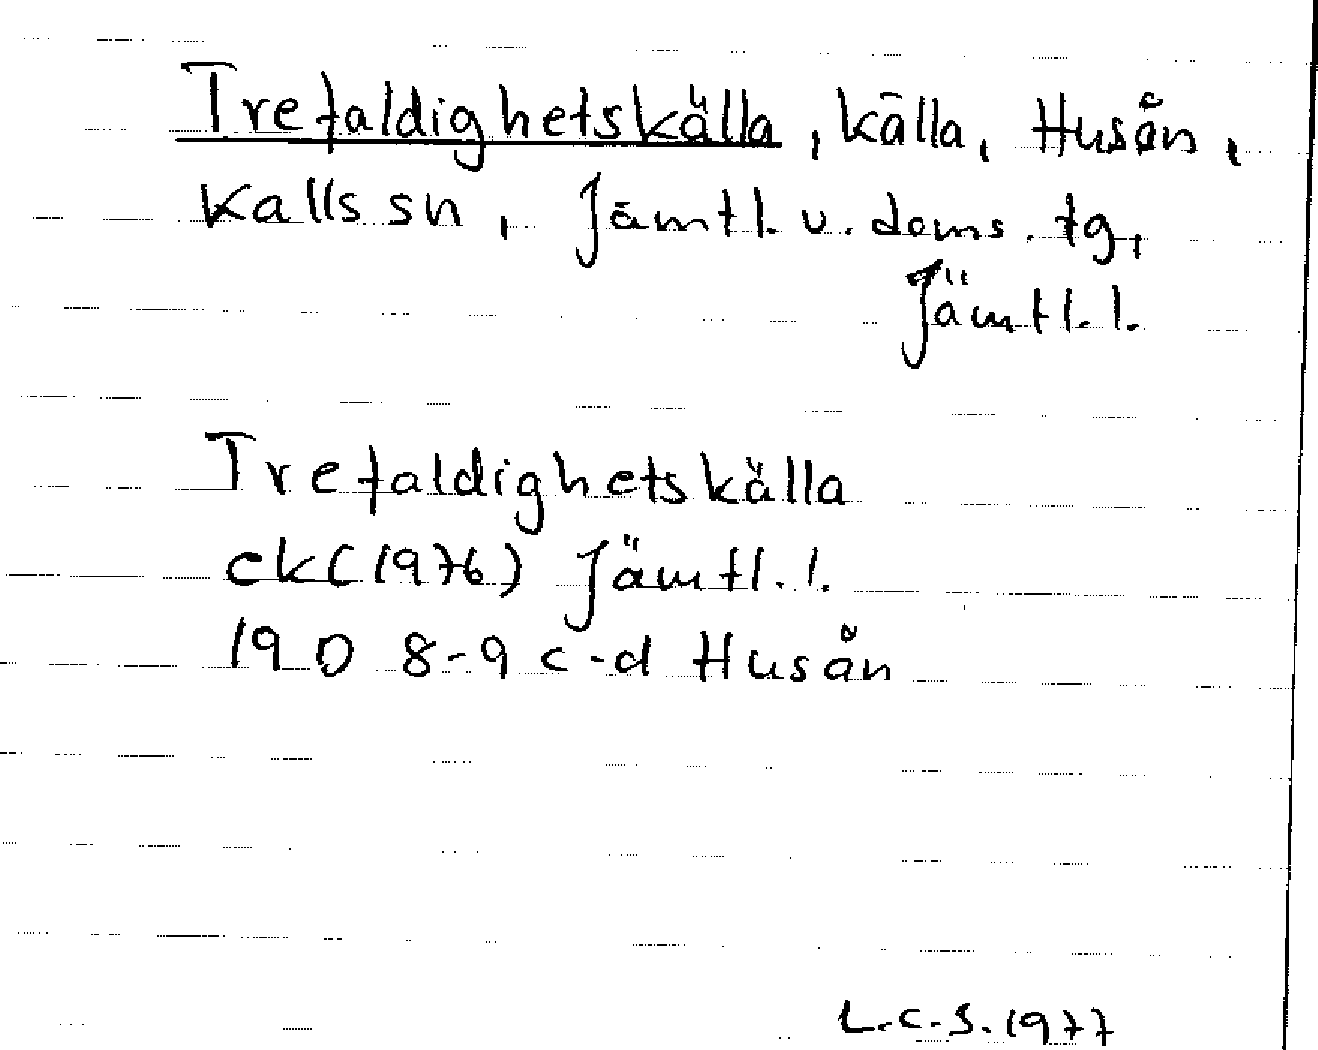 Trefaldighetskälla, källa, Husån,
Kalls sn, Jämtl. v. doms. tg,
Jämtl. l.
Trefaldighetskälla
ek (1976) Jämtl. l.
19 D 8-9 c-d Husån
L.C.S. 1977